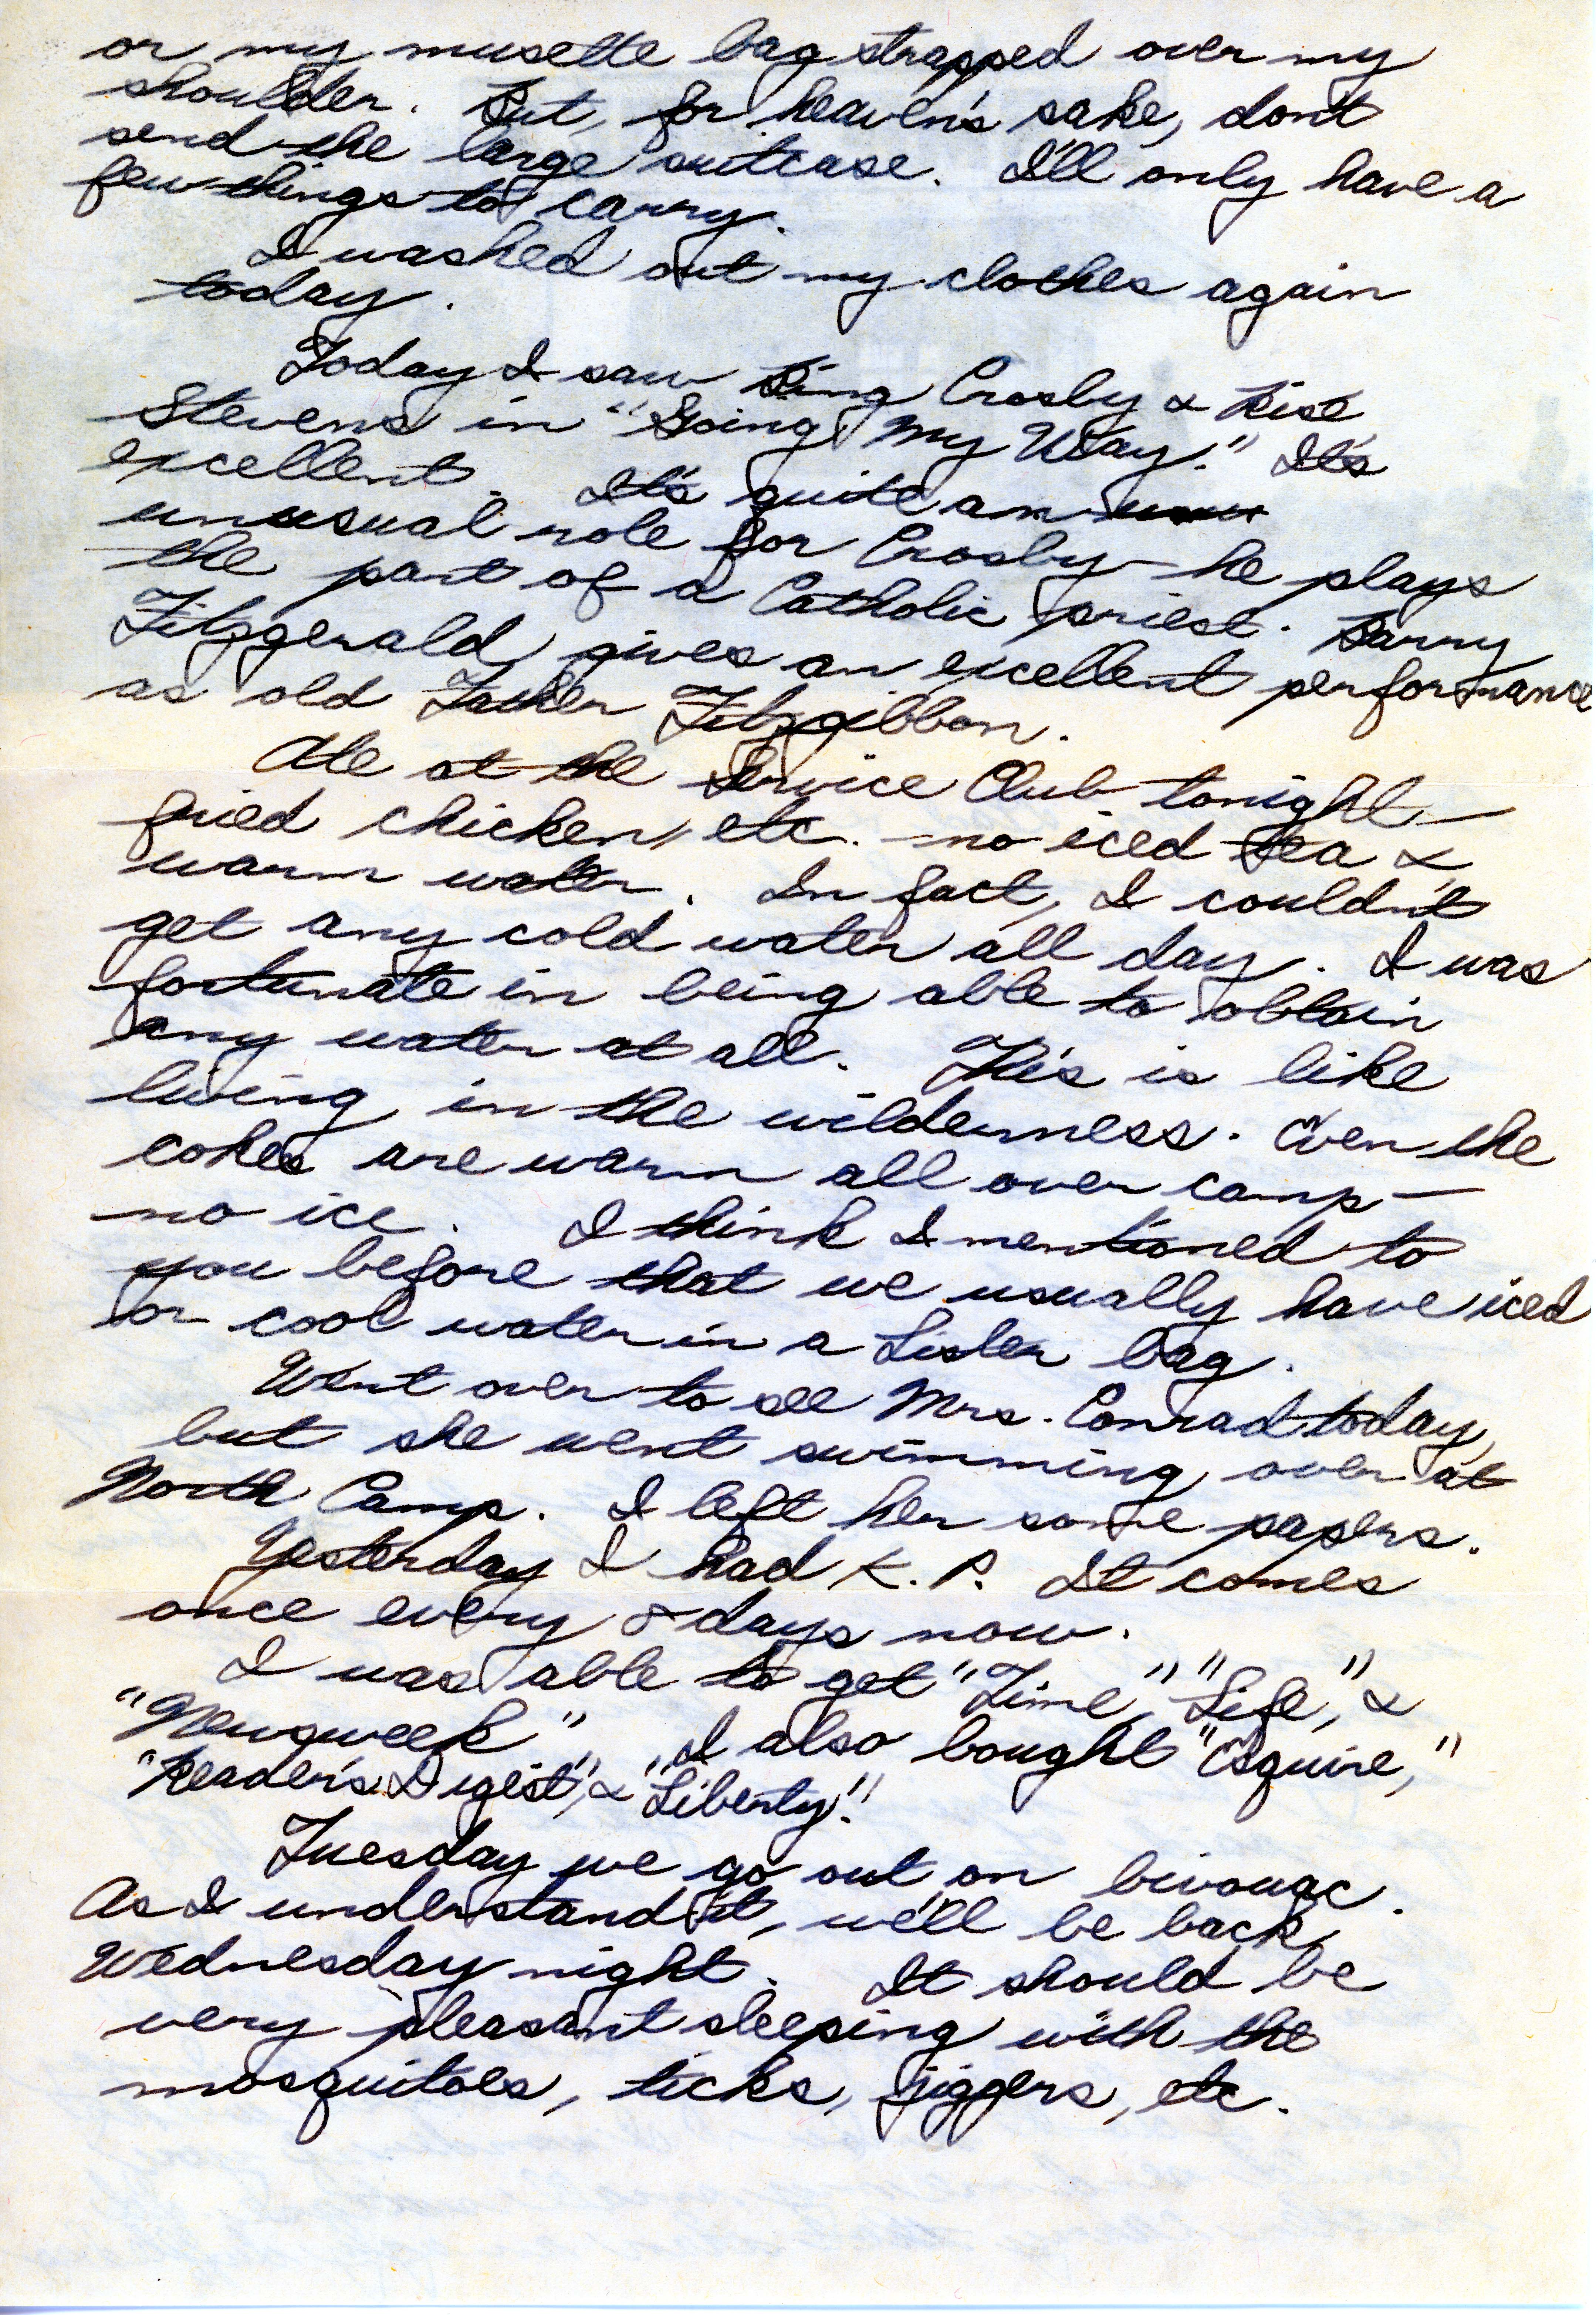 or my musette bag strapped over my
shoulder. But, for heaven's sake, don't
send the large suitcase. I'll only have a
few things to carry.
I washed out my clothes again
today.
Today I saw Bing Crosby & Risë
Stevens in "Going My Way." It's
excellent. It's quite an
unusual role for Crosby — he plays
the part of a Catholic priest. Barry
Fitzgerald gives an excellent performance
as old Father Fitzgibbon.
Ate at the Service Club tonight —
fried chicken, etc. — no iced tea &
warm water. In fact, I couldn't
get any cold water all day. I was
fortunate in being able to obtain
any water at all. This is like
living in the wilderness. Even the
cokes are warm all over camp —
no ice. I think I mentioned to
you before that we usually have iced
or cool water in a Lister bag.
Went over to see Mrs. Conrad today,
but she went swimming over at
North Camp. I left her some papers.
Yesterday I had K.P. It comes
once every 8 days now.
I was able to get "Time," "Life," &
"Newsweek" I also bought "Esquire,"
"Reader's Digest", & "Liberty."
Tuesday we go out on bivouac.
As I understand it, we'll be back
Wednesday night. It should be
very pleasant sleeping with the
mosquitoes, ticks, jiggers, etc.